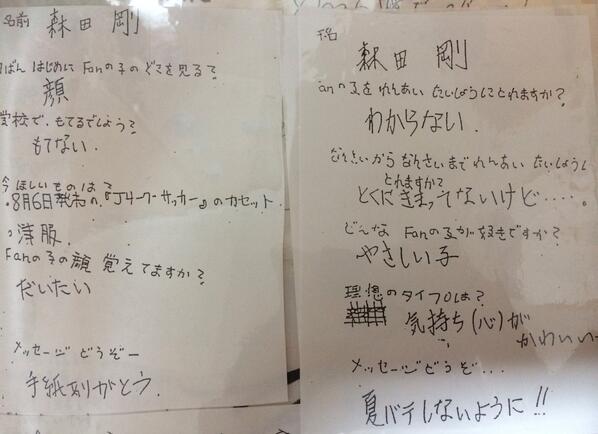 名前 森田 剛
ばん はじめに Fanの子のどこを見る?
顔
学校で、もてるでしょう?
もてない.
今 ほしいものは?
・8月6日発売の『Jリーグ・サッカー』のカセット.
・洋服.
Fanの子の顔 覚えてますか?
だいたい
メッセージどうぞー
手紙ありがとう.
名 森田 剛
anの子をれんあい たいしょうにとれますか?
わからない.
なんさいから なんさいまでれんあい たいしょうに
とれますか?
とくにきまってないけど・・・・.
どんな Fanの子が好きですか?
やさしい子
理想のタイプは?
気持ち(心)が
かわいい
メッセージどうぞ...
夏バテしないように!!